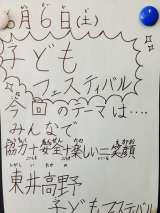 月6日(土)
子ども
フェスティバル
今回のテーマは‥‥
みんなで
協労+安全+楽しい=笑顔
東井高野
子どもフェスティバル